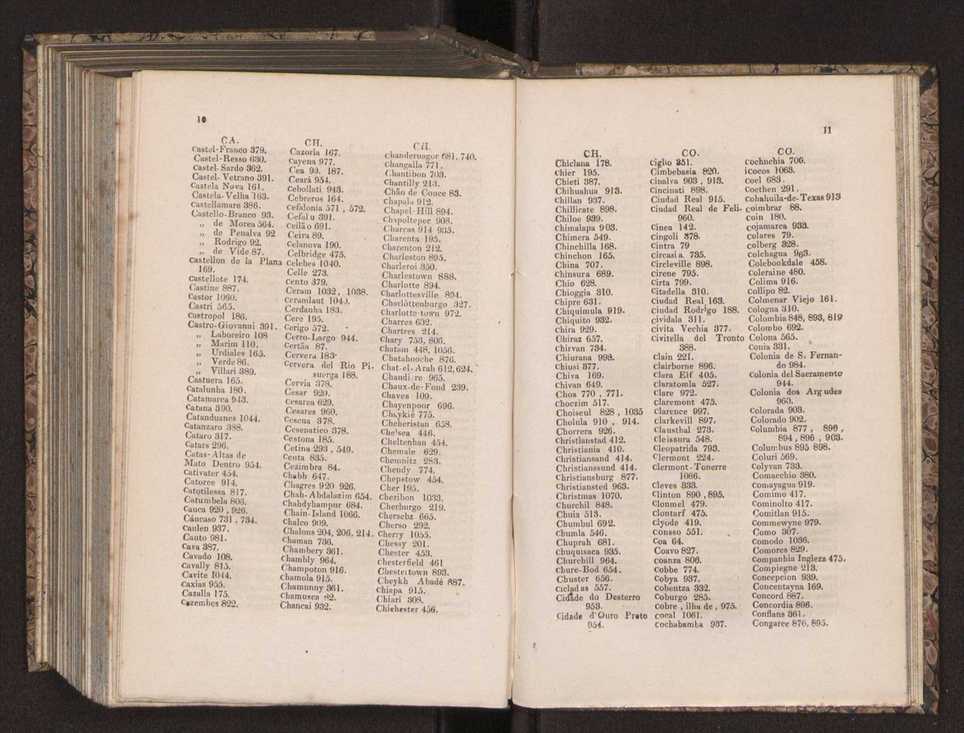 10
CA.
Castel-Franco 379.
Castel-Resso 630.
Castel-Sardo 362.
Castel-Vetrano 391.
Castela Nova 161.
Castela-Velha 163.
Castellamare 386.
Castello-Branco 93.
„ de Morea 564.
„ de Penalva 92
„ Rodrigo 92.
„ de Vide 87.
Castellon de la Plana
169.
Castellote 174.
Castine 887.
Castor 1090.
Castri 565.
Castropol 186.
Castro-Giovanni 391.
„ Laboreiro 108
„ Marim 110.
„ Urdiales 165.
„ Verde 86.
„ Villari 389.
Castuera 165.
Catalunha 180.
Catamarca 943.
Catana 390.
Catanduanes 1044.
Catanzaro 388.
Cataro 317.
Catars 296.
Catas-Altas de
Mato Dentro 954.
Cativater 454.
Catorce 914.
Catotilessa 817.
Catumbela 806.
Cauca 920, 926.
Cáucaso 731, 734.
Caulen 937.
Cauto 981.
Cava 387.
Cavado 108.
Cavally 815.
Cavite 1044.
Caxias 955.
Cazalla 175.
Cazembes 822.
CH.
Cazoria 167.
Cayena 977.
Cea 90. 187.
Ceará 954.
Cebollati 943.
Cebreros 164.
Cefalonia 571, 572.
Cefalu 391.
Ceilão 691.
Ceira 89.
Celanova 190.
Celbridge 475.
Celebes 1040.
Celle 273.
Cento 379.
Ceram 1032, 1038.
Ceramlaut 1040.
Cerdanha 183.
Cere 195.
Cerigo 572.
Cerro-Largo 944.
Certãa 87.
Cervera 183.
Cervera del Rio Pi-
suerga 188.
Cervia 378.
Cesar 920.
Cesarea 629.
Cesares 960.
Cescua 378.
Cesenatico 378.
Cestona 185.
Cetina 293, 549.
Ceuta 835.
Cezimbra 84.
Chabb 647.
Chagres 920 926.
Chah-Abdalazim 654.
Chahdyhampur 684.
Chain-Island 1066.
Chalco 909.
Chalons 204, 206, 214.
Chaman 736.
Chambery 361.
Chambly 964.
Champoton 916.
Chamola 915.
Chamunny 361.
Chamusca 82.
Chancai 932.
CH.
Chandernagor 681, 740.
Changalla 771.
Chantibon 703.
Chantilly 213.
Chão de Couce 83.
Chapala 912.
Chapel-Hill 894.
Chapoltepec 908.
Charcas 914 935.
Charenta 195.
Charenton 212.
Charleston 895.
Charleroi 350.
Charlestown 888.
Charlotte 894.
Charlottesville 894.
Charlottenburgo 327.
Charlotte-town 972.
Charres 652.
Chartres 214.
Chary 753, 806.
Chatam 448, 1056.
Chatahooche 876.
Chat-el-Arah 612, 624.
Chandière 965.
Chaux-de-Fond 239.
Chaves 109.
Chayenpoor 696.
Chaykié 775.
Cheheristan 658.
Chelsea 446.
Cheltenhan 454.
Chemale 629.
Chemnitz 283.
Chendy 774.
Chepstow 454.
Cher 195.
Cheribon 1033.
Cherburgo 219.
Cherschz 665.
Cherso 292.
Cherry 1055.
Chessy 201.
Chester 453.
Chesterfield 461
Chestertown 893.
Cheykh Abadé 887.
Chiapa 915.
Chiari 308.
Chichester 456.
11
CH.
Chiclana 178.
Chier 195.
Chieti 387.
Chihuahua 913.
Chillan 937.
Chillicate 898.
Chiloe 939.
Chimalapa 903.
Chimera 549.
Chinchilla 168.
Chinchon 165.
China 707.
Chinsura 689.
Chio 628.
Chioggia 310.
Chipre 631.
Chiquimula 919.
Chiquito 932.
Chira 929.
Chiraz 657.
Chirvan 734.
Chiurana 993.
Chiusi 377.
Chiva 169.
Chivan 649.
Choa 770, 771.
Choczim 517.
Choiseul 828, 1035
Cholula 910, 914.
Chorrera 926.
Christianstad 412.
Christiania 410.
Christiansand 414.
Christianssund 414.
Christiansburg 877.
Christiansted 963.
Christmas 1070.
Churchil 848.
Chuia 513.
Chumbul 692.
Chumla 546.
Chuprah 681.
Chuquisaca 935.
Churchill 964.
Chure-Rod 654.
Chuster 656.
Cicladas 557.
Cidade do Desterro
953.
Cidade d'Ouro Preto
954.
CO.
Ciglio 351.
Cimbebasia 820.
Cinalva 903, 913.
Cincinati 898.
Ciudad Real 915.
Ciudad Real de Feli-
960.
Cinea 142.
Cingoli 378.
Cintra 79
Circasia 735.
Circleville 898.
Cirene 795.
Cirta 799.
Citadella 310.
Ciudad Real 163.
Ciudad Rodrigo 188.
Cividala 311.
Civita Vechia 377.
Civitella del Tronto
388.
Clain 221.
Clairborne 896.
Clara Elf 405.
Claratomla 527.
Clare 972.
Claremont 475.
Clarence 997.
Clarkevill 897.
Clausthal 273.
Cleissura 548.
Cleopatrida 793.
Clermont 224.
Clermont-Tonerre
1066.
Cleves 333.
Clinton 890, 895.
Clonmel 479.
Clontarf 475.
Clyode 419.
Consso 551.
Coa 64.
Coavo 827.
Coanza 806.
Cobbe 774.
Cobya 937.
Cobentza 332.
Coburgo 285.
Cobre, ilha de, 975.
Cocal 1061.
Cochabamba 937.
CO.
Cochnchia 706.
Cocos 1063.
Coel 683.
Coethen 291.
Cohahuila-de-Texas 913
Coimbrar 88.
Coin 180.
Cojamarca 933.
Colares 79.
Colberg 328.
Colchagua 963.
Colebookdale 458.
Coleraine 480.
Colima 916.
Collipo 82.
Colmenar Viejo 161.
Cologna 310.
Colombia 848, 893, 819
Colombo 692.
Colona 565.
Conia 331.
Colonia de S. Fernan-
do 984.
Colonia del Sacramento
944.
Colonia dos Argudes
960.
Colorada 903.
Colorado 902.
Columbia 877, 896,
894, 896, 903.
Columbus 895 898.
Coluri 569.
Colyvan 733.
Comacchio 380.
Comayagua 919.
Comimo 417.
Cominolto 417.
Comitlan 915.
Commewyne 979.
Como 307.
Comodo 1036.
Comores 829.
Companhia Ingleza 475.
Compiegne 213.
Concepcion 939.
Concentayna 169.
Concord 887.
Concordia 896.
Conflans 361.
Congaree 876, 895.